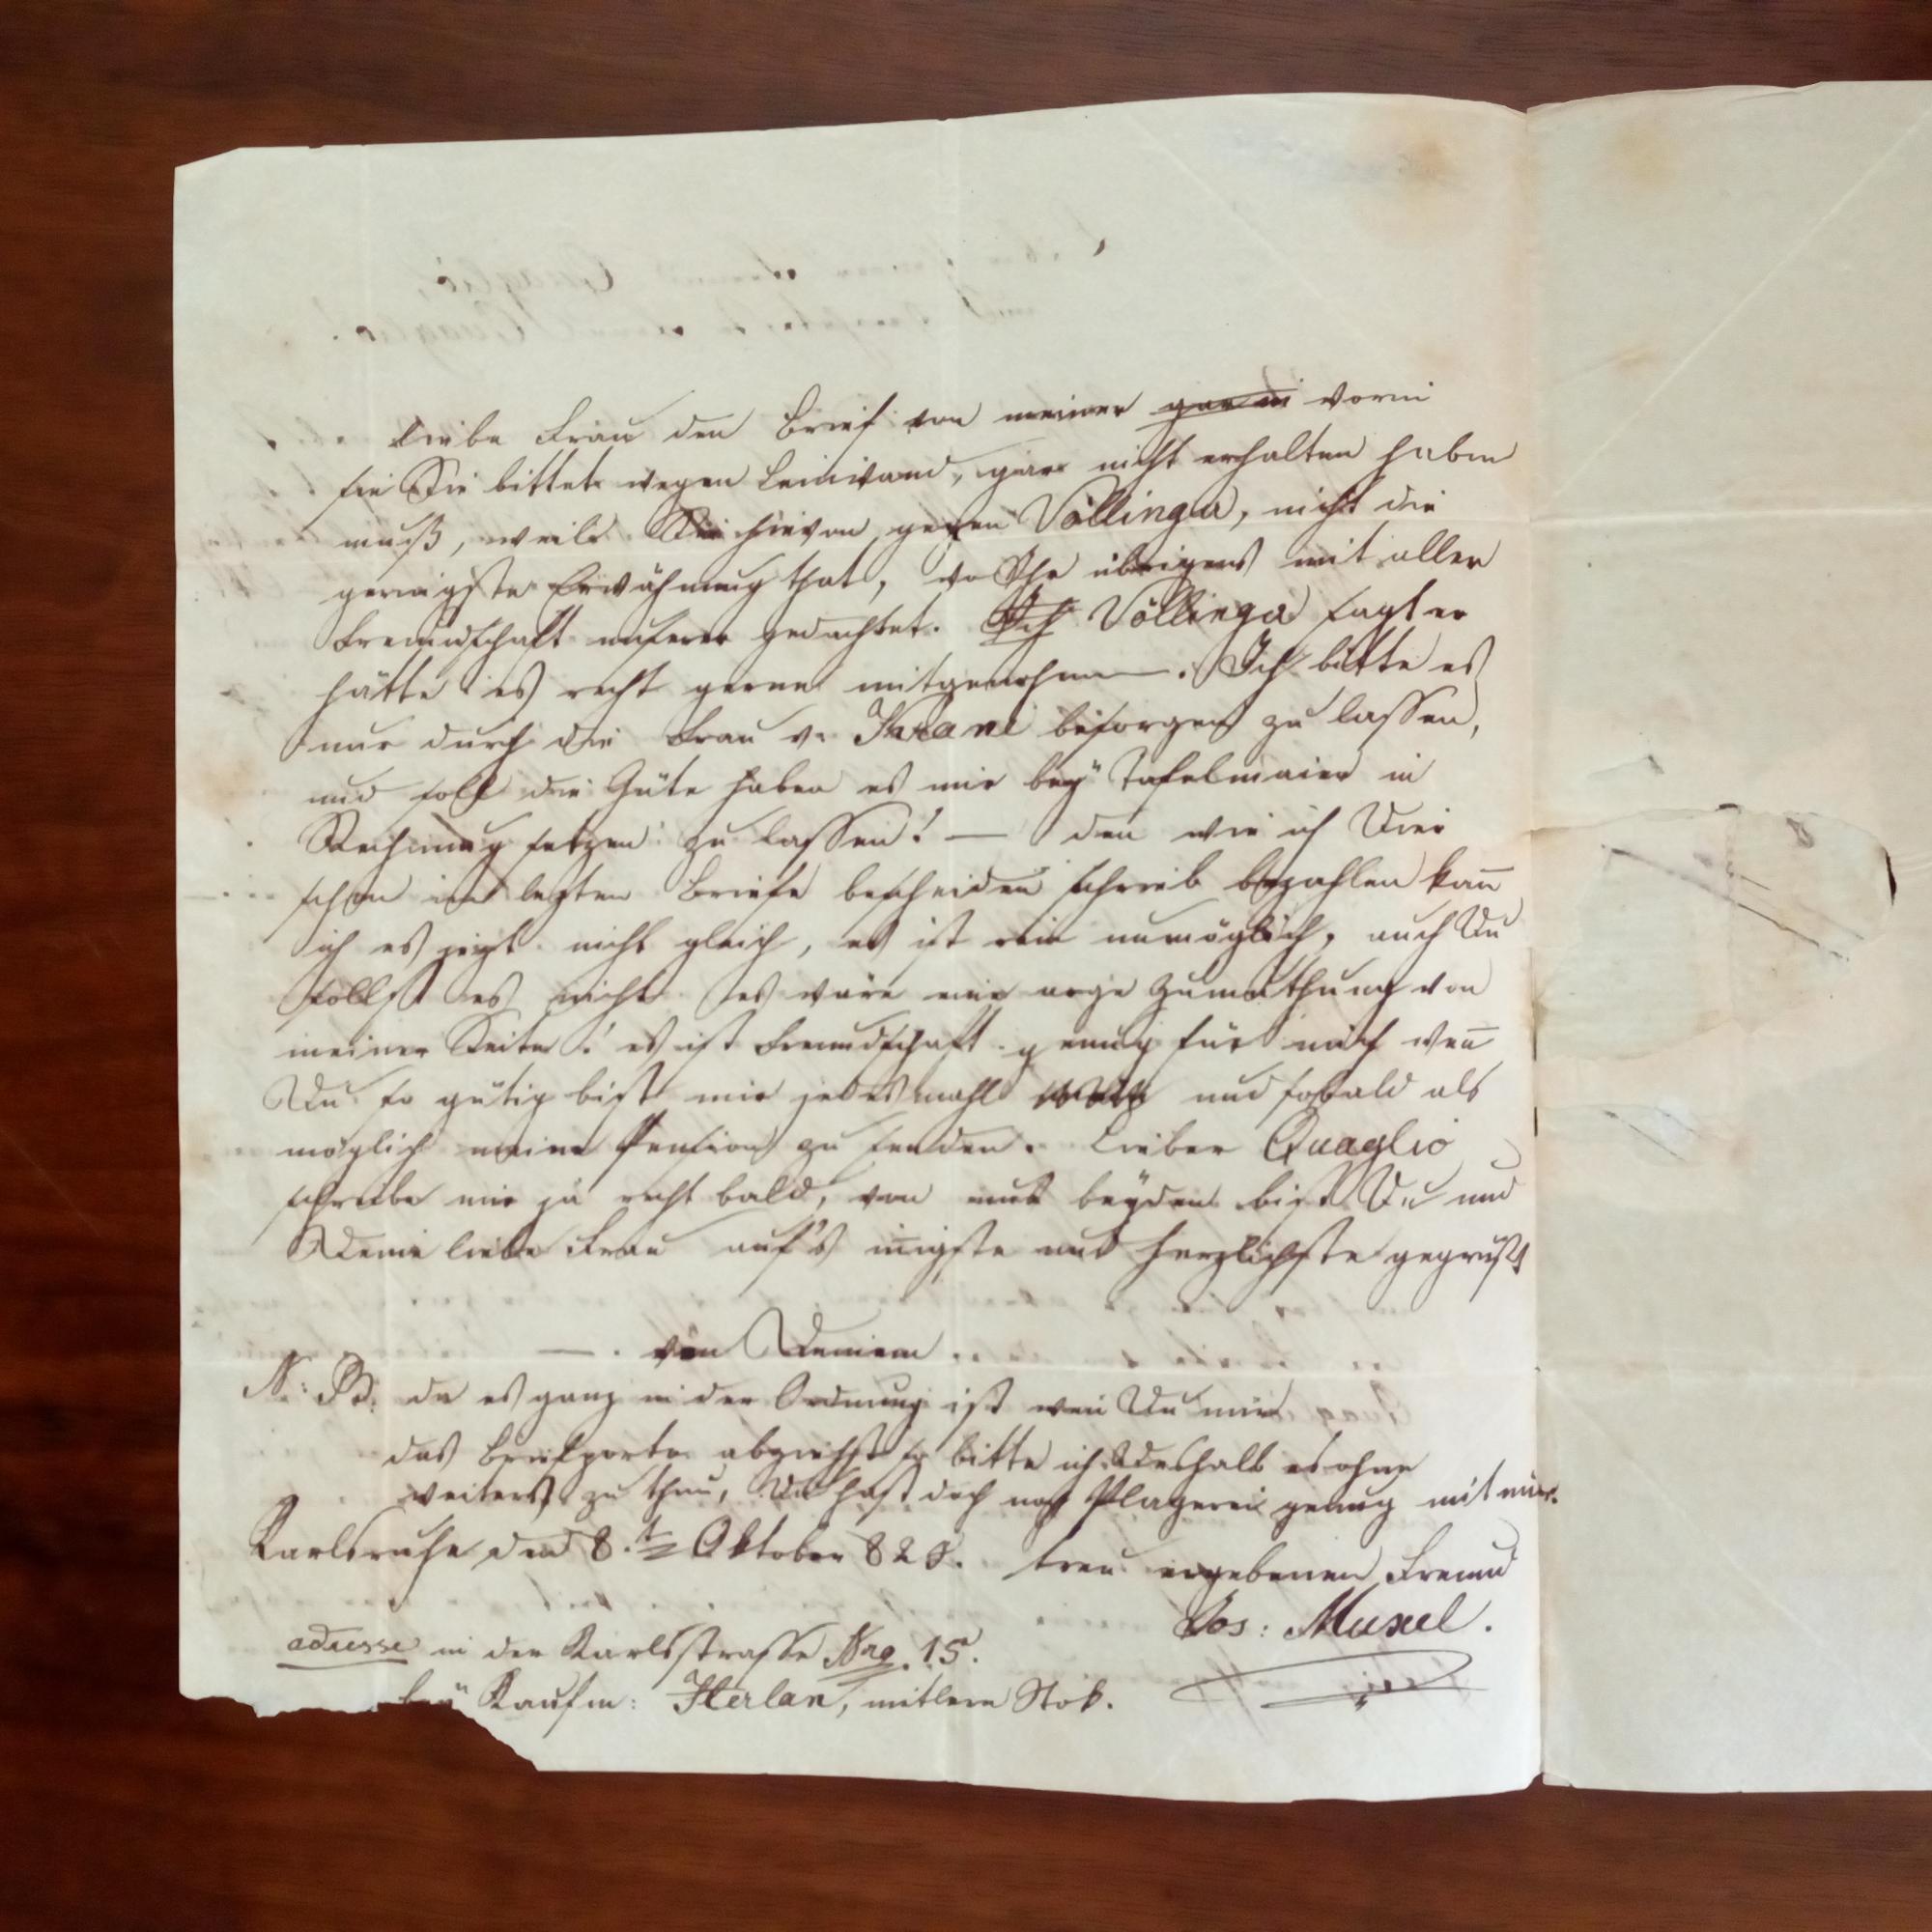 liebe Frau den Brief von meiner gar in vorin
sie Sie bittet wegen Leinwand, gar nicht erhalten haben
muß, weil Sie hievon gegen Völlinger, nicht die
geringste Erwähnung that, da Ihr übrigens mit aller
Freundschaft unserer gedachtet. Ich Völlinger sagt er
hätte es recht gerne mitgenohmen. Ich bitte es
nur durch die Frau v. Krane besorgen zu lassen,
und soll die Güte haben es mir bey Tafelmaier in
Rechnung setzen zu lassen! — den wie ich Dir
schon im lezten Briefe bescheiden schrieb bezahlen kan̄
ich es jezt nicht gleich, es ist rein unmöglich, auch Du
sollst es nicht es wäre eine arge Zumuthung von
meiner Seite! es ist Freundschaft genug für mich wen̄
Du so gütig bist mir jedesmahl und sobald als
möglich meine Pension zu senden. Lieber Quaglio
schreibe mir ja recht bald, von uns beyden bist Du und
Deine liebe Frau auf's in̄igste und herzlichste gegrüßt
—. von Deinem
N: B: da es ganz in der Ordnung ist wen Du mir
das Briefporto abziehst so bitte ich Deshalb es ohne
weiters zu thun, Du hast doch noch Plagerei genug mit mir.
Karlsruhe den 8.t Oktober 828. treu ergebenen Freund
Jos: Muxel.
adresse in der Karlsstrasse Nro. 15.
bey Kaufm: Herlan, mitlern Stok.